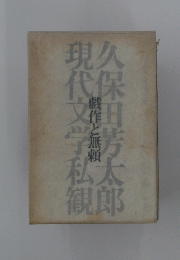 久保田芳太郎
戯作と無頼
現代文学私観